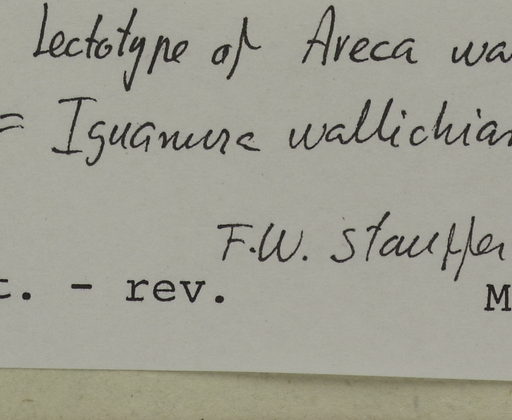 Lectotype of Areca wa
= Iguanura wallichian
F.W. Stauffer
t. - rev. M